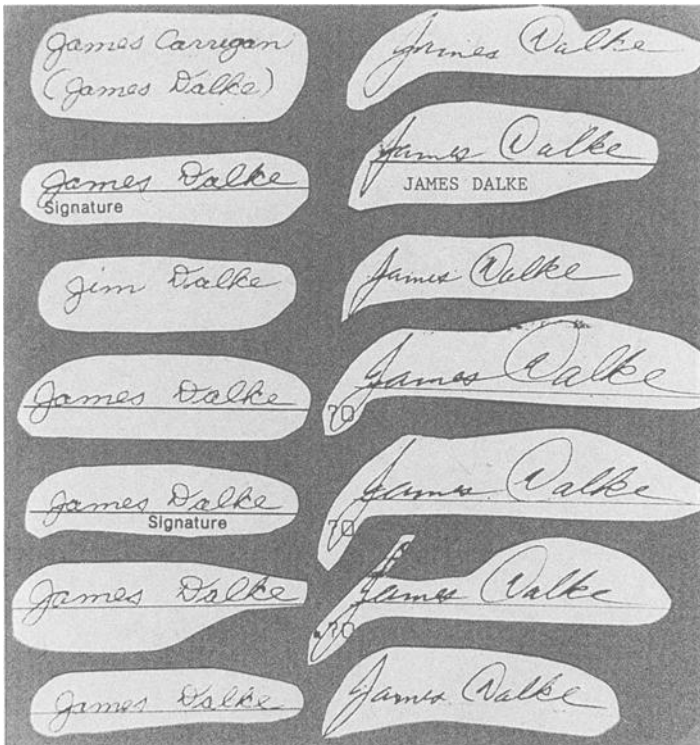 James Carrigan
(James Dalke)
James Dalke
Signature
Jim Dalke
James Dalke
James Dalke
Signature
James Dalke
James Dalke
James Dalke
James Dalke
JAMES DALKE
James Dalke
James Dalke
70
James Dalke
70
James Dalke
70
James Dalke